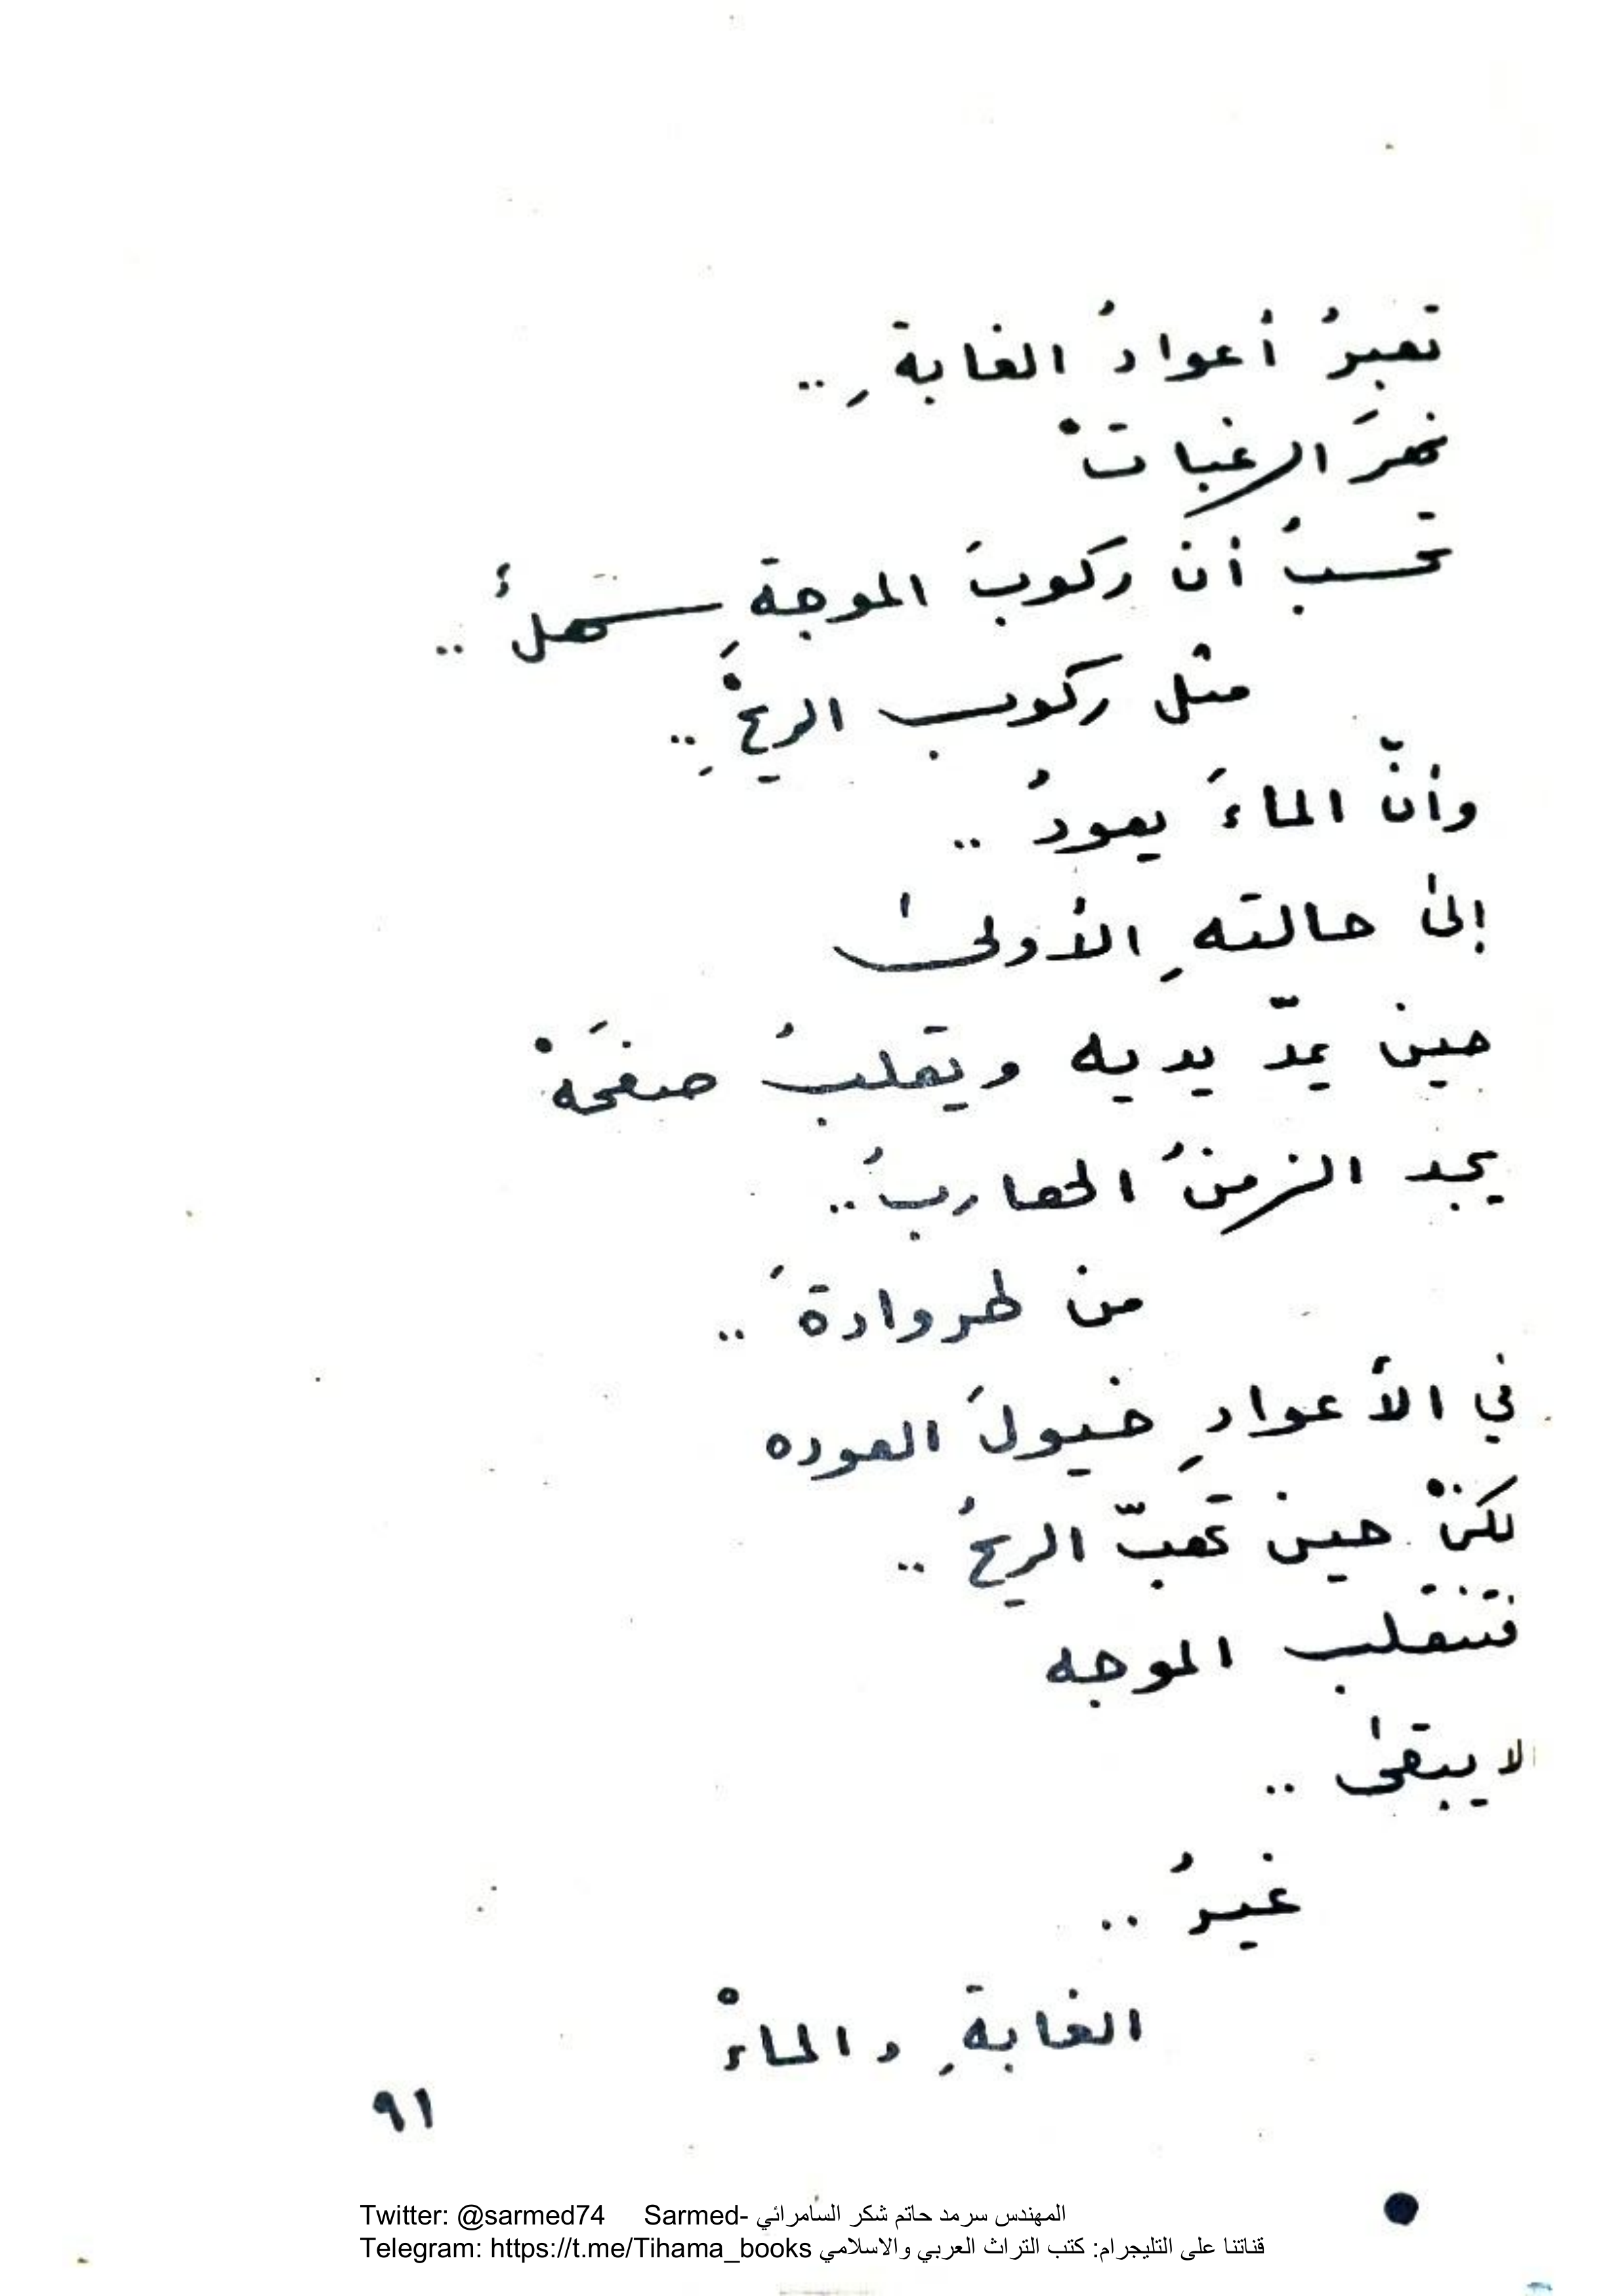 تعبرُ أعوادُ الغابةِ ..
نهرَ الرغباتْ
تحسبُ أن ركوبَ الموجةِ سهلٌ ..
مثل ركوب الريحِ ..
وأنّ الماءَ يعودُ ..
إلى حالتهِ الأولى
حين يمدّ يديه ويقلبُ صفحَهْ
يجد الزمنُ الهاربُ ..
من طروادةَ ..
في الأعوادِ خيولَ العوده
لكنْ حين تهبّ الريحُ ..
فتنقلب الموجه
لا يبقى ..
غيرُ ..
الغابةِ والماءْ
٩١
Twitter: @sarmed74 Sarmed- المهندس سرمد حاتم شكر السامرائي
Telegram: https://t.me/Tihama_books قناتنا على التليجرام: كتب التراث العربي والاسلامي